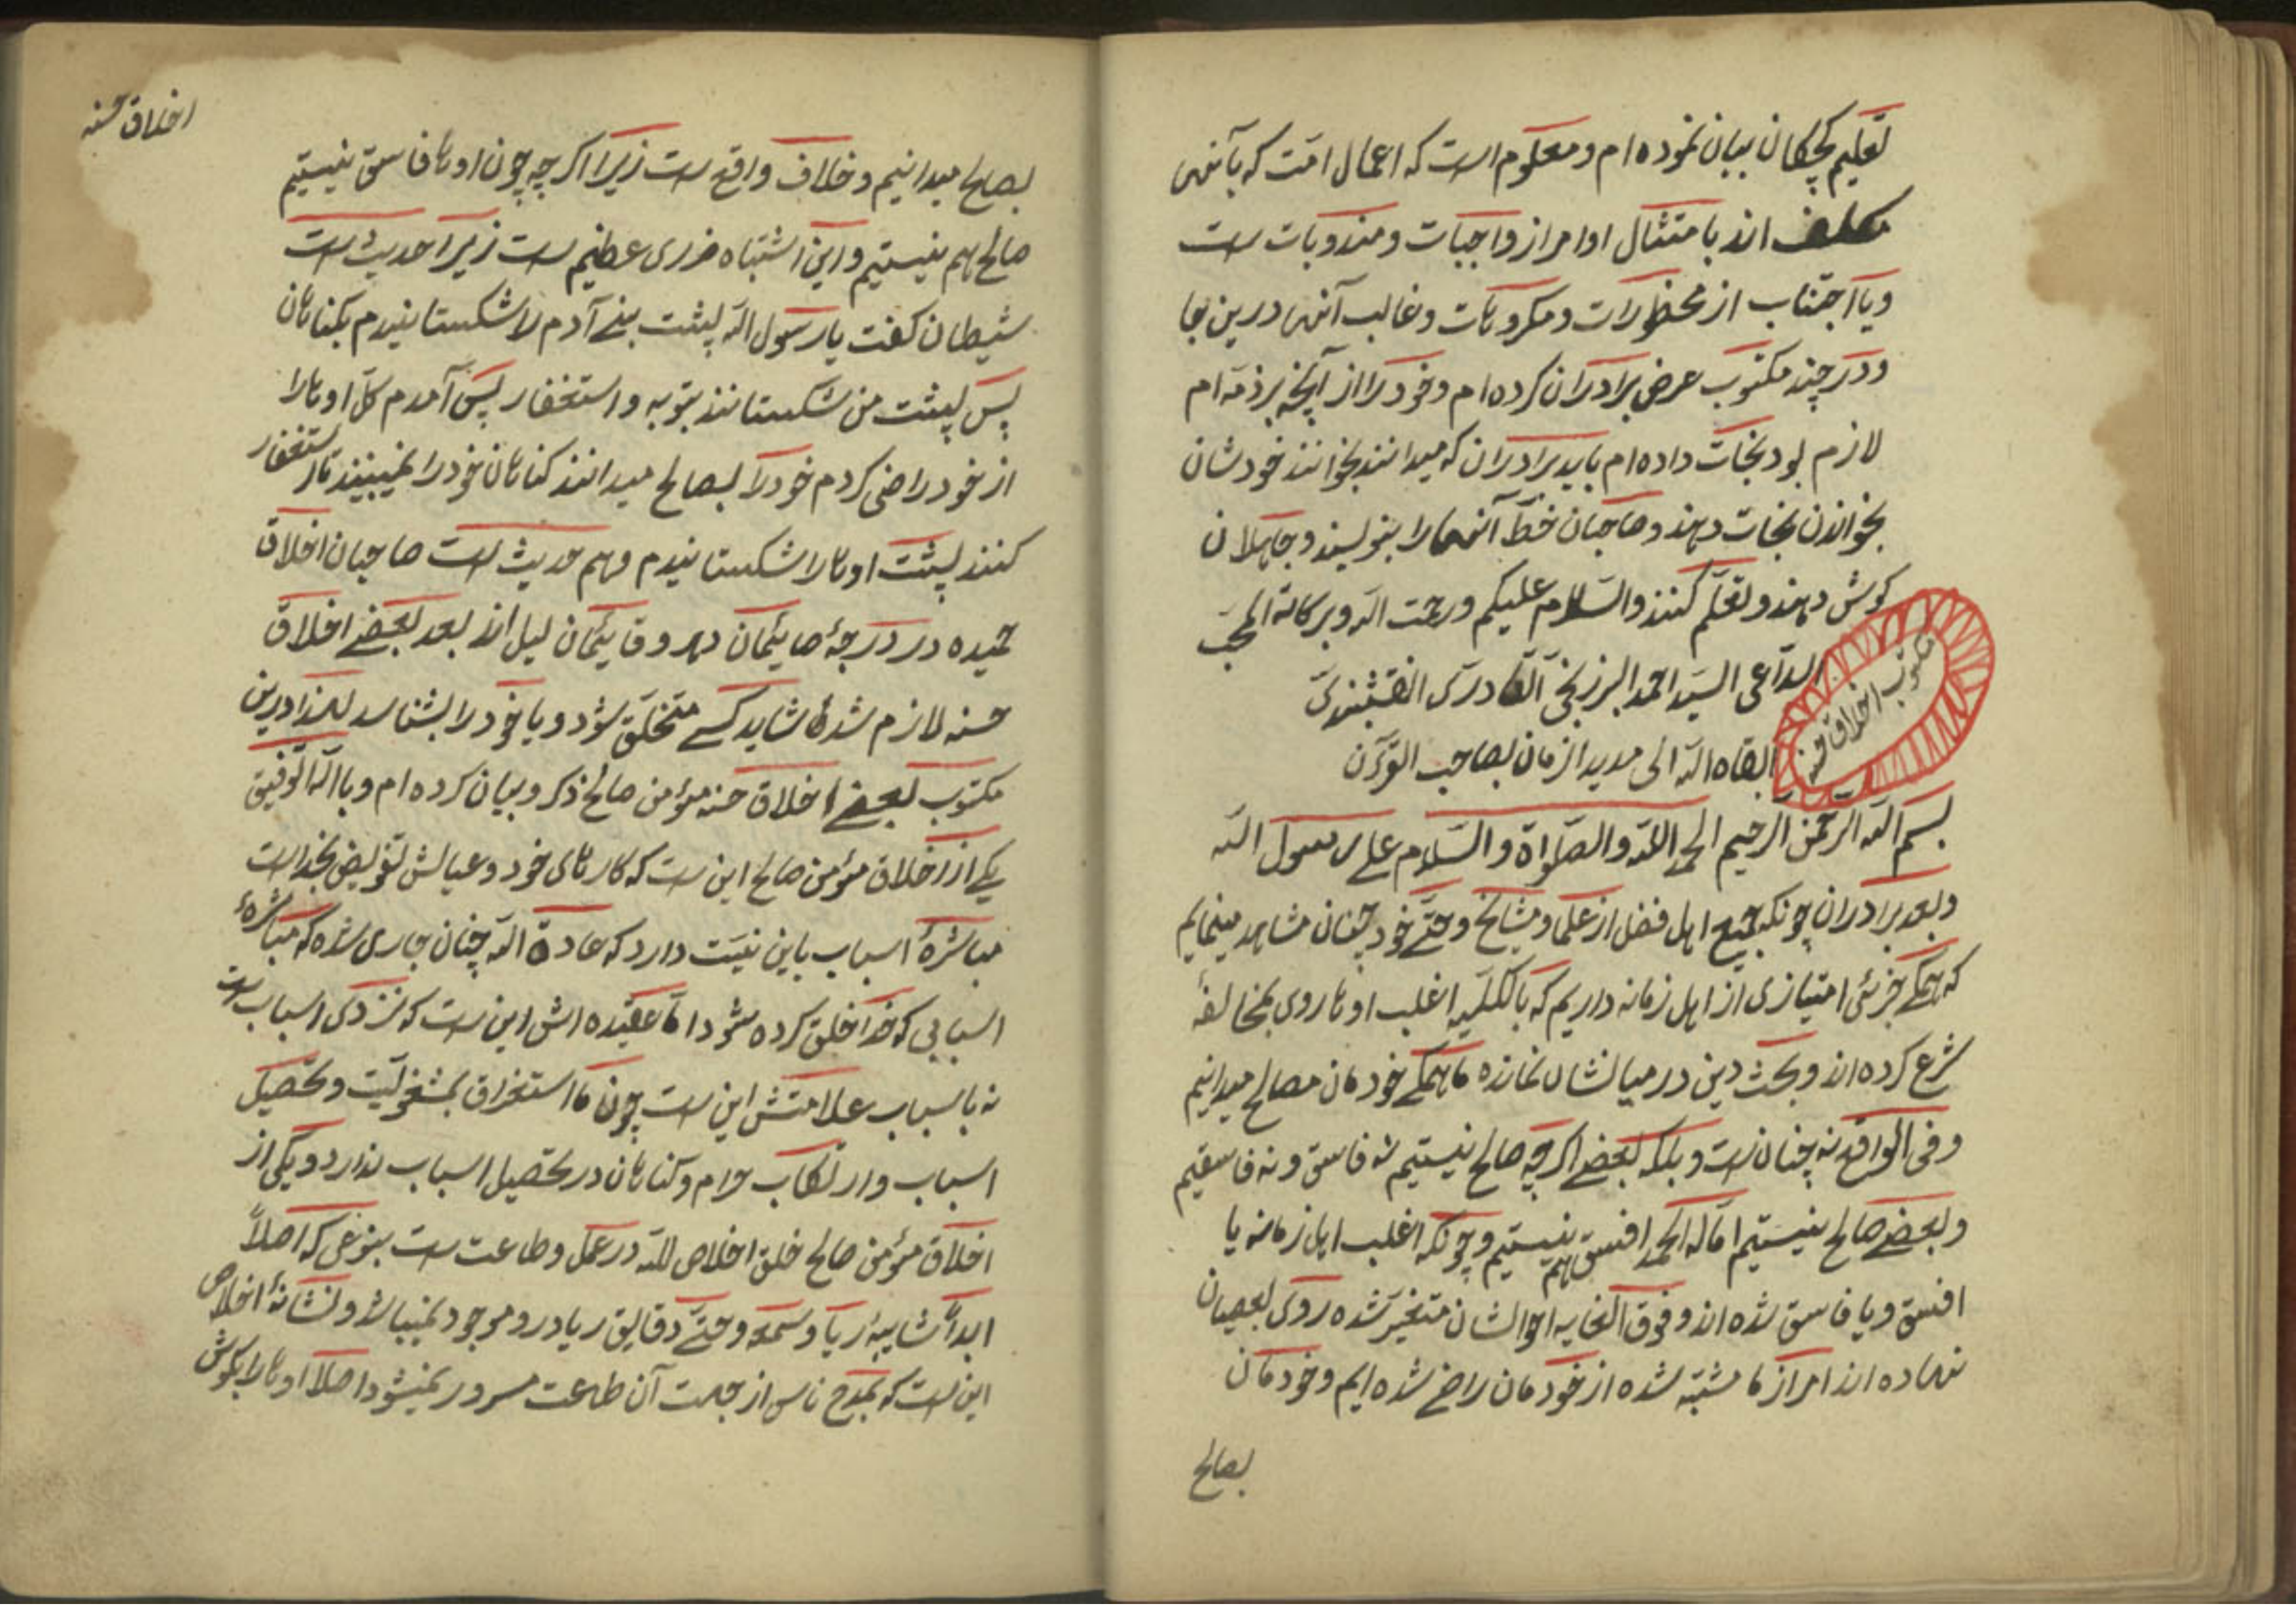 تعلیم بچکان بیان نموده ام و معلوم است که اعمال امت که بآنهی
مکلف اند بامتثال اوامر از واجبات و مندوبات ست
و یا اجتناب از محظورات و مکروهات و غالب آنهی درین جا
و در چند مکتوب عرض برادران کرده ام و خود را از آنچه بر ذمه ام
لازم بود نجات داده ام باید برادران که میدانند بخوانند خودشان
بخواندن نجات دهند و صاحبان خط آنها را بنویسند و جاهلان
کوش دهند و تعلّم کنند والسّلام علیکم ورحمت الله وبرکاته المحبّ
الداعی السید احمد البرزنجی القادری النقشبندی
ابقاه الله الی مدید الزمان بصاحب القرآن
مکتوب اخلاق حسنه
بسم الله الرحمن الرحیم الحمد الله والصلواة والسّلام علی رسول الله
وبعد برادران چونکه جمیع اهل فضل از علما و مشایخ و حتّی خود چنان مشاهد مینمایم
که همکی جزئی امتیازی از اهل زمانه داریم که بالکلیه اغلب اوها روی بمخالفهٔ
شرع کرده اند و بحث دین در میانشان نمانده ما همکی خودمان مصالح میدانیم
وفی الواقع نه چنان ست و بلکه بعضی اکرچه صالح نیستیم نه فاسق و نه فاسقیم
وبعضی صالح نیستیم اما له الحمد افسق هم نیستیم و چونکه اغلب اهل زمانه یا
افسق و یا فاسق شده اند و فوق الغایه احوالشان متغیر شده روی بعصیان
نهاده اند امر از ما مشتبه شده از خودمان راضی شده ایم و خودمان
بصالح
اخلاق حسنه
بصالح میدانیم و خلاف واقع ست زیرا اکر چه چون اوها فاسق نیستیم
صالح هم نیستیم و این اشتباه ضرری عظیم ست زیرا حدیث ست
شیطان کفت یا رسول الله پشت بنی آدم را شکستانیدم بکناهان
پس پشت من شکستانند بتوبه و استغفار پس آمدم کل اوها را
از خود راضی کردم خود را بصالح میدانند کناهان خود را نمیبینند تا استغفار
کنند پشت اوها را شکستانیدم وهم حدیث ست صاحبان اخلاق
حمیده در درجهٔ صائمان دهر و قائمان لیل اند بعد بعضی اخلاق
حسنه لازم شده شاید کسی متخلّق شود و یا خود را بشناسد لهذا درین
مکتوب بعضی اخلاق حسنه مؤمن صالح ذکر و بیان کرده ام و باالله التوفیق
یکی از اخلاق مؤمن صالح این ست که کارهای خود و عیالش تفویض بخداست
مباشرهٔ اسباب باین نیّت دارد که عادة الله چنان جاری شده که مباشرهٔ
اسبابی که خدا خلق کرده شود اما عقیده اش این ست که نزدی اسباب ست
نه باسباب علامتش این ست چون ما استغراق بمشغولیّت و تحصیل
اسباب و ارتکاب حرام و کناهان در تحصیل اسباب ندارد و یکی از
اخلاق مؤمن صالح خلق اخلاص للّه در عمل و طاعت ست بنوعی که اصلاً
ابداً شایبهٔ ریا و سمعه و حتّی دقایق ریا در و موجود نمیباشد و نشانهٔ اخلاص
این ست که بمدح ناس از جهت آن طاعت مسرور نمیشود اصلا اوها را بکوش